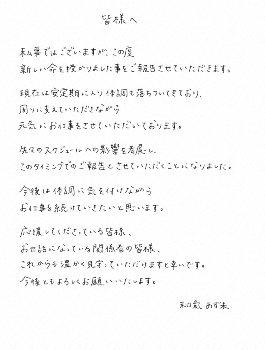 皆様へ
私事ではございますが、この度
新しい命を授かりました事をご報告させていただきます。
現在は安定期に入り体調も落ちついてきており、
周りに支えていただきながら
元気にお仕事をさせていただいております。
佐々のスケジュールへの影響を考慮し、
このタイミングでのご報告とさせていただくことになりました。
今後は体調に気を付けながら
お仕事を続けていきたいと思います。
応援してくださっている皆様、
お世話になっている関係者の皆様、
これからも温かく見守っていただけますと幸いです。
今後ともよろしくお願いいたします。
和氣 あず未